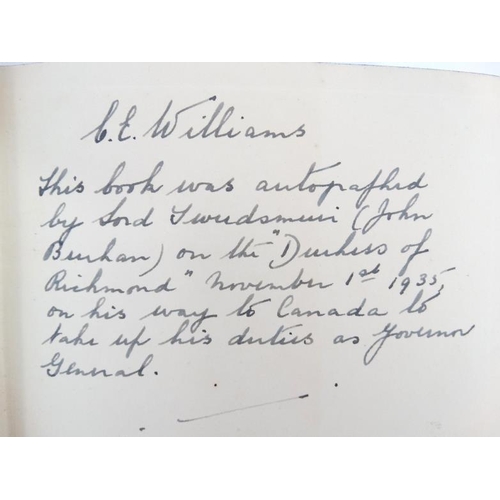 C.E. Williams
This book was autographed
by Lord Tweedsmuir (John
Buchan) on the "Duchess of
Richmond" November 1st 1935,
on his way to Canada to
take up his duties as Governor
General.